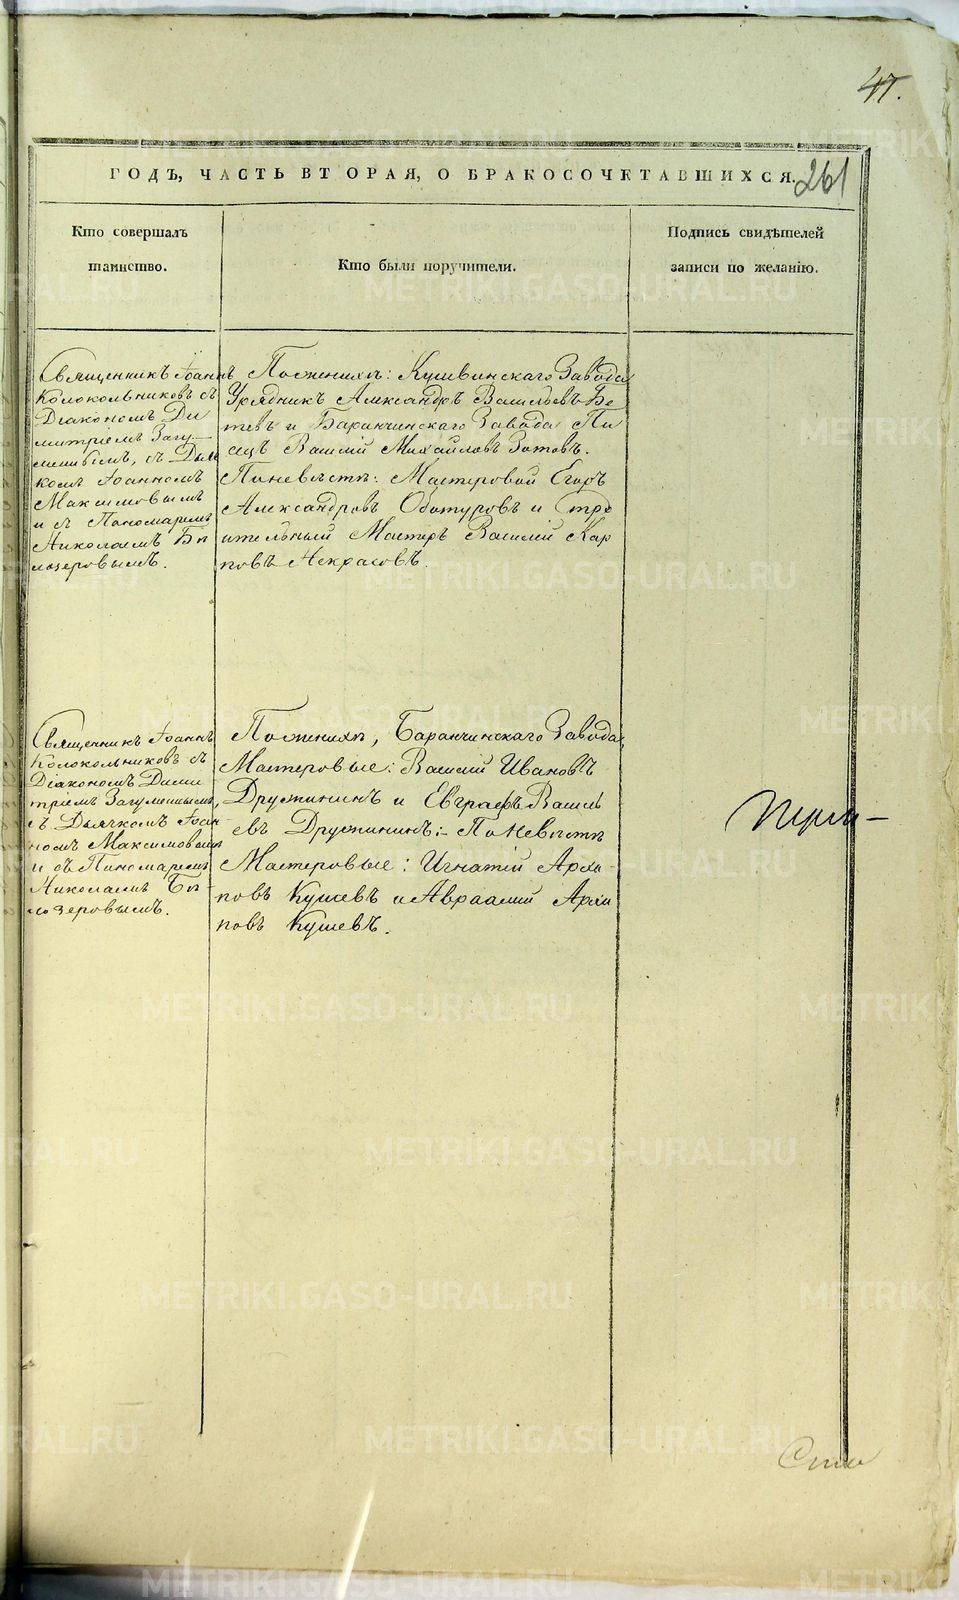 47.
ГОДЪ, ЧАСТЬ ВТОРАЯ, О БРАКОСОЧЕТАВШИХСЯ.
261
Кто совершалъ
таинство.
Кто были поручители.
Подпись свидѣтелей
записи по желанію.
Священникъ Іоаннъ
Колокольниковъ съ
Діакономъ Ди
митріемъ Загу-
меннымъ, съ Дьяч
комъ Іоанномъ
Максимовымъ
и съ Пономаремъ
Николаемъ Бѣ
лозеровымъ.
Поженихѣ: Кушвинскаго Завода
Урядникъ Александръ Васильевъ Бе
тевъ и Баранчинскаго Завода Пи
сецъ Василій Михайловъ Зотовъ.
Поневѣстѣ: Мастеровой Егоръ
Александровъ Обатуровъ и Стро
ительный Мастеръ Василій Кар
повъ Некрасовъ.
Священникъ Іоаннъ
Колокольниковъ съ
Діакономъ Дими
тріемъ Загуменнымъ,
съ Дьячкомъ Іоан
номъ Максимовымъ
и съ Пономаремъ
Николаемъ Бѣ-
лозеровымъ.
Поженихѣ, Баранчинскаго Завода,
Мастеровые: Василій Ивановъ
Дружининъ и Евграфъ Василь
евъ Дружининъ:- Поневѣстѣ
Мастеровые: Игнатій Архи-
повъ Кушевъ и Авраамій Архи
повъ Кушевъ.
METRIKI.GASO-URAL.RU